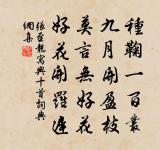 種鞠一百叢
九月開盈枝
莫言無好花
好花開羅遲
張至龍寫興十首詞典
網集